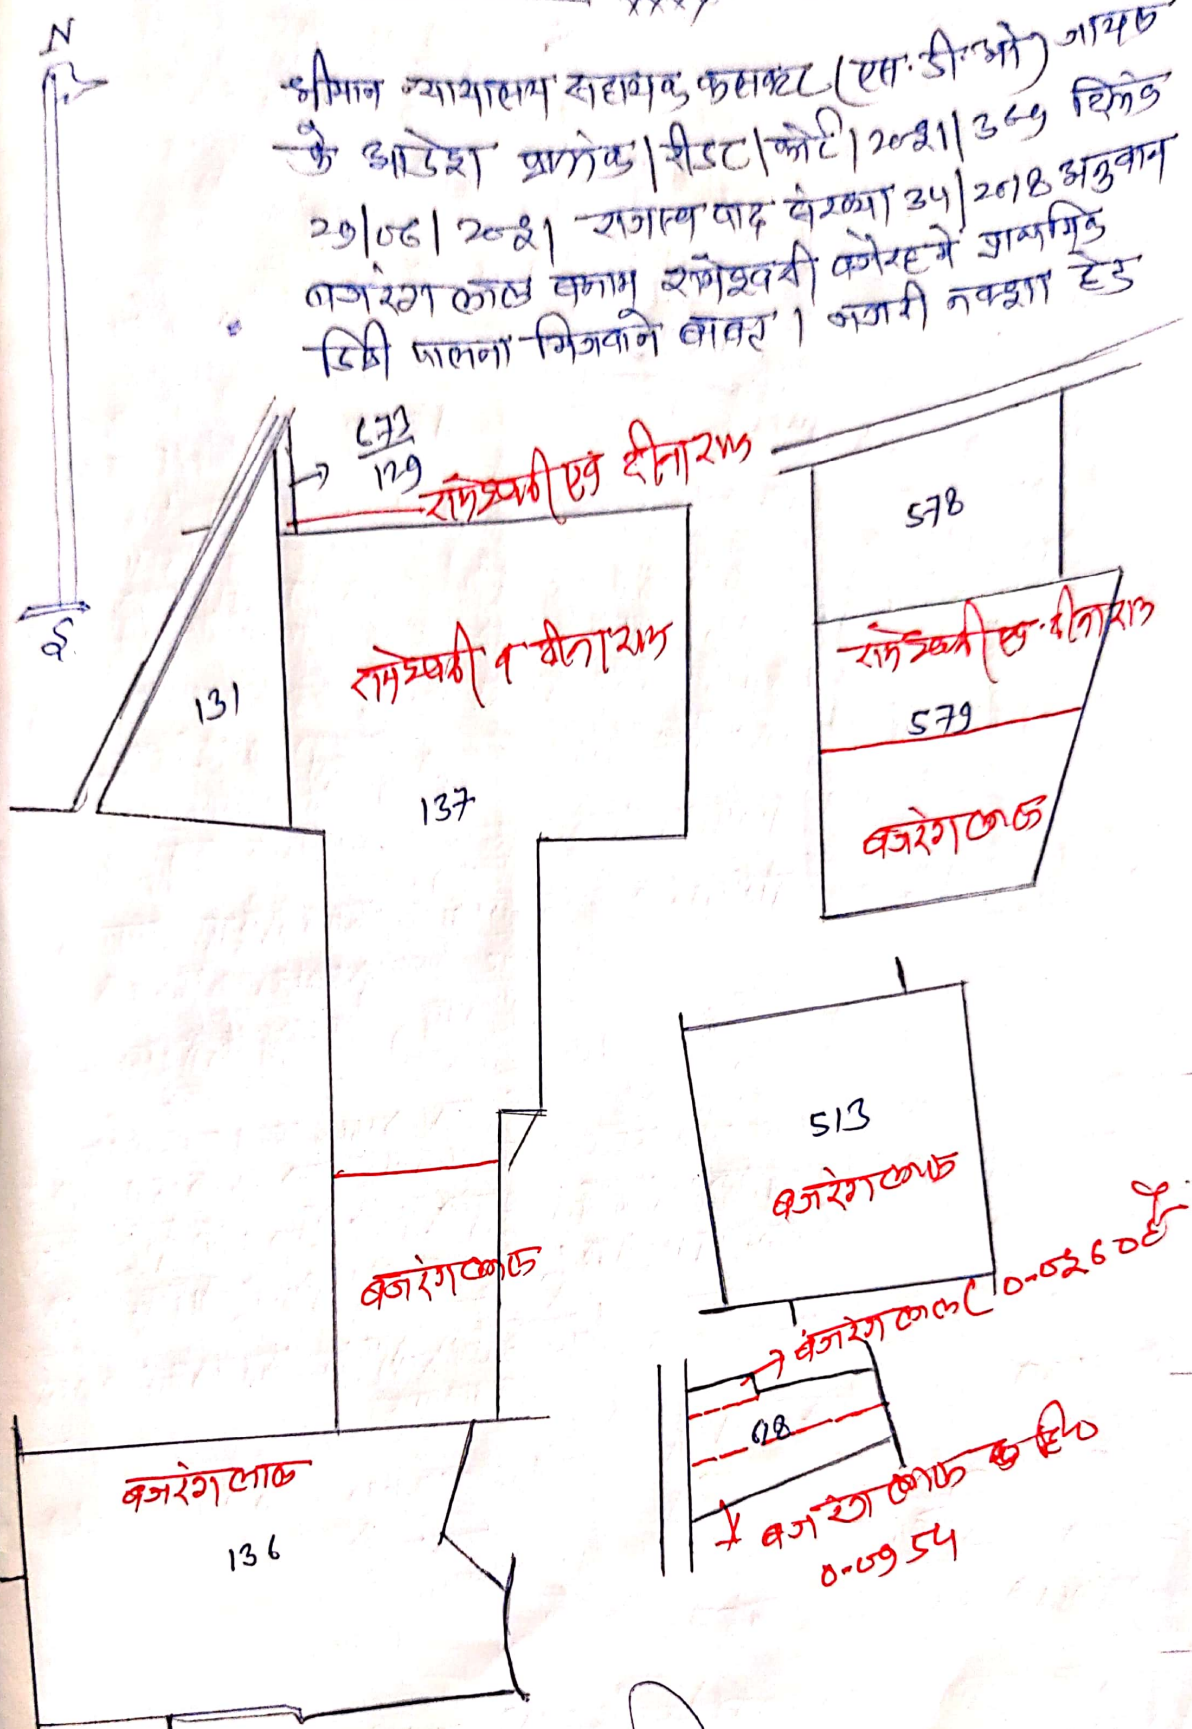 N
श्रीमान न्यायालय सहायक कलक्टर (एस.डी.ओ)
के आदेश क्रमांक/रीडर/कोर्ट/2021/369 दिनांक
29/06/2021 राजस्व वाद संख्या 34/2018 अनुवान
बजरंग लाल बनाम रामेश्वरी वगेरह मे प्राथमिक
डिक्री पालना भिजवाने बाबत । नजरी नक्शा हेतु
673
129
रामेश्वरी एवं दीनाराम
578
रामेश्वरी व दीनाराम
रामेश्वरी एवं दीनाराम
131
579
137
बजरंगलाल
513
बजरंगलाल
बजरंगलाल
बजरंग लाल
बजरंगलाल
136
बजरंग लाल